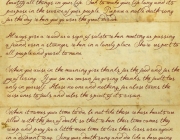 beautify all things in your life. Seek to make your life long and its
purpose in the service of your people. Prepare a noble death song
for the day when you go over the great divide.
Always give a word or a sign of salute when meeting or passing
a friend, even a stranger, when in a lonely place. Show respect to
all people and grovel to none.
When you arise in the morning give thanks for the food and for the
joy of living. If you see no reason for giving thanks, the fault lies
only in yourself. Abuse no one and nothing, for abuse turns the
wise ones to fools and robs the spirit of its vision.
When it comes your time to die, be not like those whose hearts are
filled with the fear of death, so that when their time comes, they
weep and pray for a little more time to live their lives over again
in a different way. Sing your death song and die like a hero going